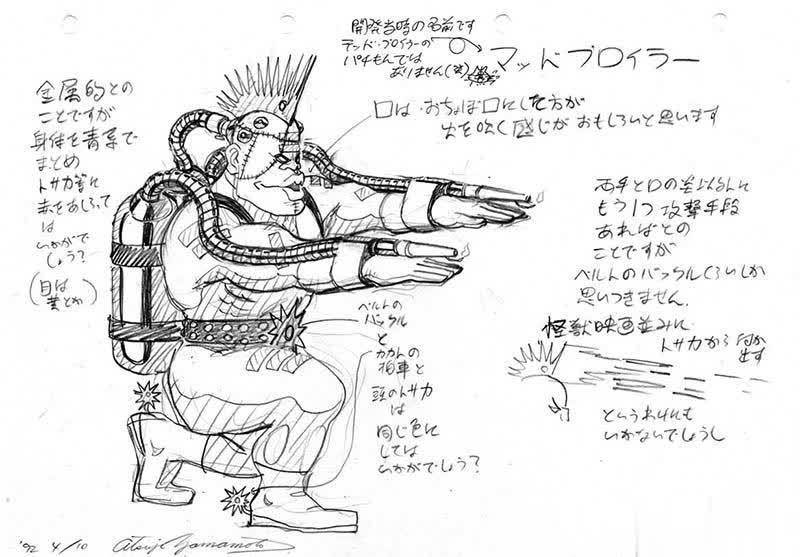 開発当時の名前です
テッド・ブロイラーの
パチもんでは
ありません(笑)
マッドブロイラー
金属的との
ことですが
身体を青系で
まとめ
トサカ等に
赤をあしらって
は
いかがで
しょう?
(目は
黄とか)
口は・おちょぼ口にした方が
火を吹く感じがおもしろいと思います
両手と口の差以外に
もう1つ攻撃手段
あればとの
ことですが
ベルトのバックルくらいしか
思いつきません.
怪獣映画並みに
トサカから何か
出す
というわけにも
いかないでしょうし
ベルトの
バックル
と
カカトの
拍車と
頭のトサカ
は
同じ色に
しては
いかがでしょう?
'92 4/10 Atsuji Yamamoto